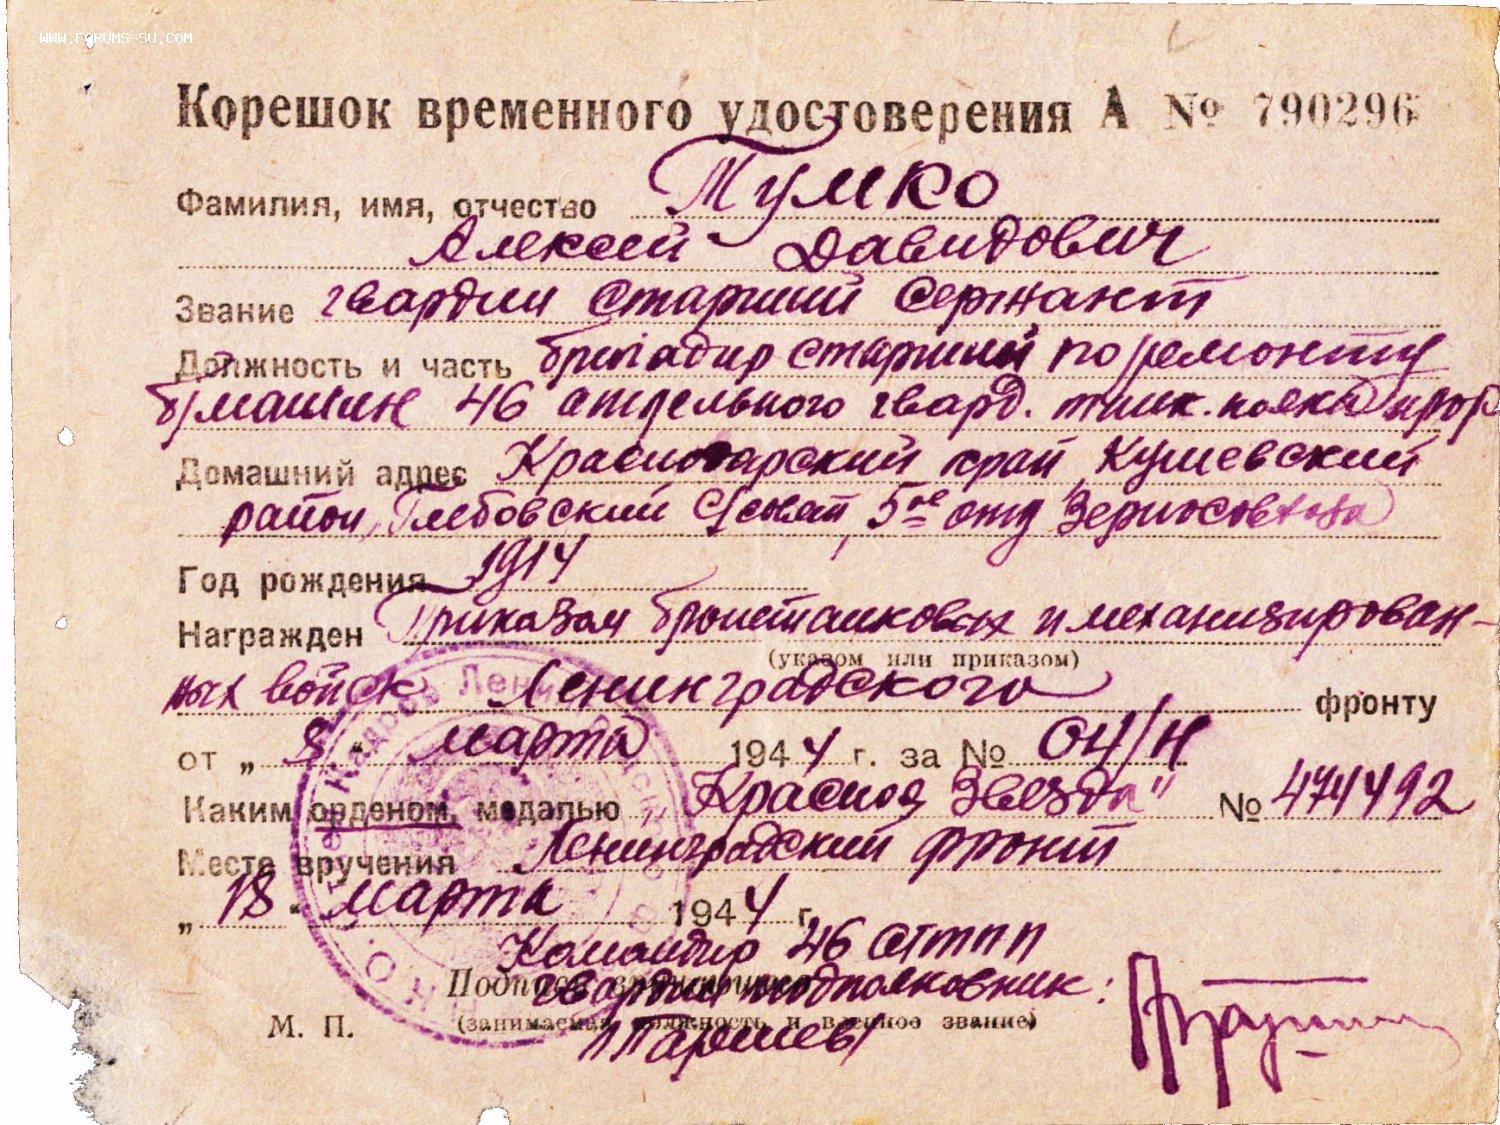 WWW.FORUMS-SU.COM
Корешок временного удостоверения А № 790296
Фамилия, имя, отчество Тумко
Алексей Давидович
Звание гвардии старший сержант
Должность и часть бригадир старший по ремонту
б/машин 46 отдельного гвард. танк. полка прор
Домашний адрес Краснодарский край, Кушевский
район, Глебовский С/совет, 5ое отд Зерносовхоза
Год рождения 1914
Награжден Приказом бронетанковых и механизирован-
(указом или приказом)
ных войск Ленинградского фронту
от „ 8 “ марта 1944 г. за № 04/н
Каким орденом, медалью „Красная Звезда" № 474492
Место вручения Ленинградский фронт
„ 18 “ марта 1944 г.
Командир 46 
Подпись вручившего
гвардии подполковник:
(занимаемая должность и военное звание)
М. П.